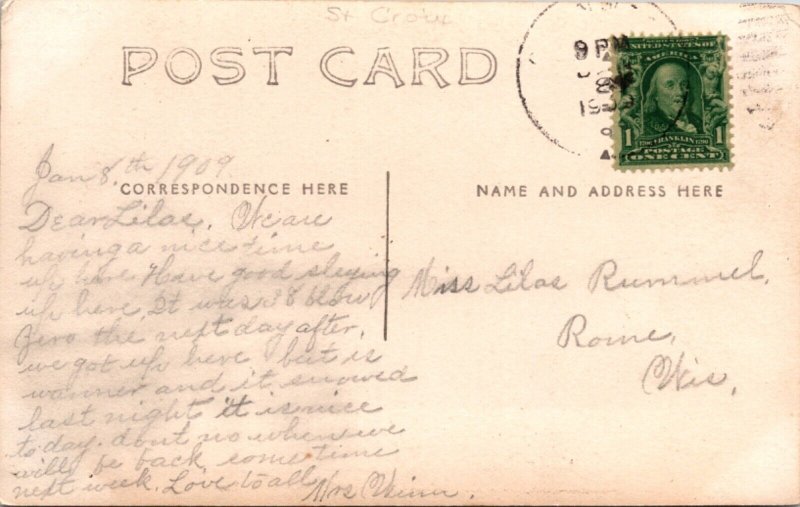 St Croix
POST CARD
9 PM
8
UNITED STATES OF
AMERICA
1 1706 FRANKLIN 1790 1
POSTAGE
ONE CENT
Jan 8.th 1909.
CORRESPONDENCE HERE
NAME AND ADDRESS HERE
Dear Lilas. We are
having a nice time
up here Have good sleying
up here, It was 38 blow
Zero the next day after,
we got up here but is
warmer and it snowed
last night it is nice
today. dont no when we
will be back, some time
next week. Love to all,
Mrs
Miss Lilas Rummel.
Rome,
Wis.